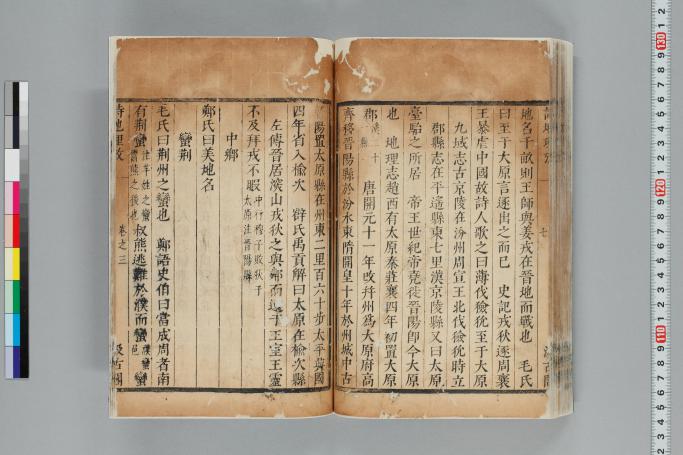 地名千畝則王師與姜戎在晉地而戰也　毛氏
曰至于大原言逐出之而已　史記戎狄逐周襄
王暴虐中國故詩人歌之曰薄伐獫狁至于大原
九域志古京陵在汾州周宣王北伐獫狁時立
郡縣志在平遙縣東七里漢京陵縣又曰太原
臺駘之所居　帝王世紀帝堯徙晉陽卽今大原
也　地理志趙西有太原秦莊襄四年初置大原
郡　唐開元十一年改幷州爲大原府高
齊移晉陽縣於汾水東隋開皇十年於州城中古
陽置太原縣在州東二里百六十步太平興國
四年省入榆次　薛氏禹貢解曰太原在榆次縣
左傳晉居深山戎狄之與鄰而遠于王室王靈
不及拜戎不暇 中行穆子敗狄于太原注晉陽縣
中鄉
鄭氏曰美地名
蠻荆
毛氏曰荆州之蠻也　鄭語史伯曰當成周者南
有荆蠻 注芈姓之蠻鬻熊之後也 叔熊逃難於濮而蠻 濮蠻邑 蠻
詩地理攷　卷之三　汲古閣